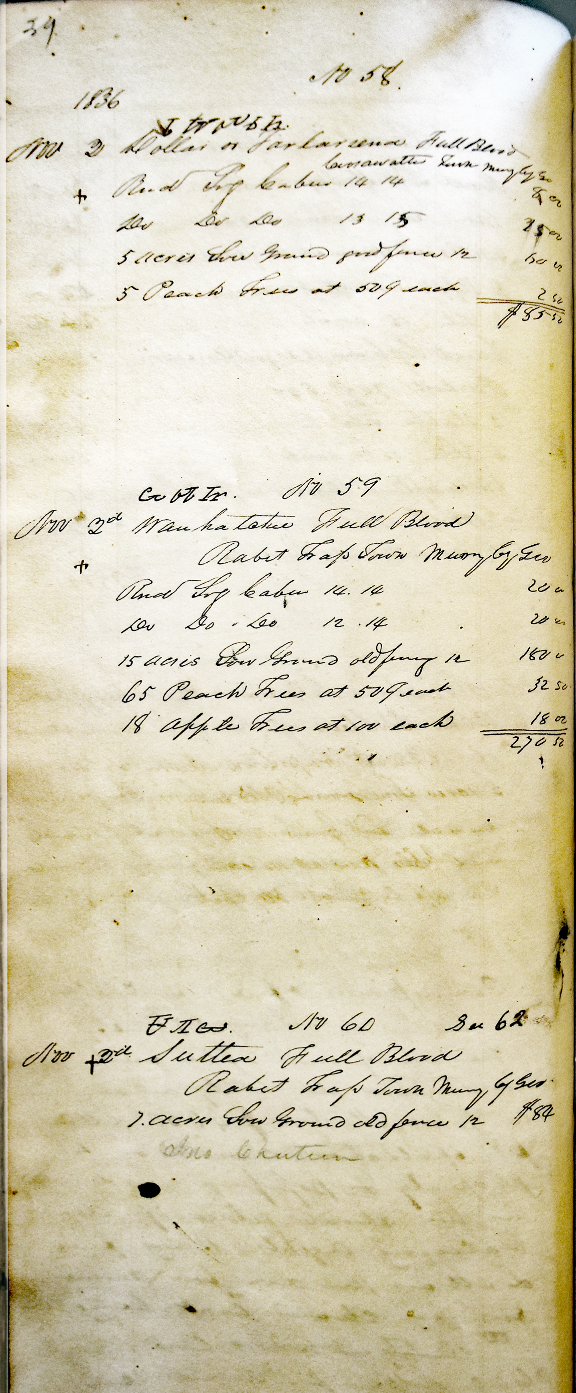 39
No 58.
1836
Nov 2 Dollar or Full Blood
Town Murry by Geo
+ Rnd Log Cabin 14 14 8 00
Do Do Do 13 15 25 00
5 acres Low Ground good fence 12 50 00
5 Peach Trees at 50¢ each 2 50
$85 50
No 59
Nov 2nd Wauhatchie Full Blood
+ Rabet Trap Town Murry by Geo
Rnd Log Cabin 14. 14 20 00
Do Do Do 12. 14 20 00
15 acres Low Ground old fencing 12 180 0
65 Peach Trees at 50¢ each 32 50
18 Apple Trees at 100 each 18 00
270 50
No 60 See 62
Nov + 2nd Suttea Full Blood
Rabet Trap Town Murry by Geo
7. acres Low Ground old fence 12 $84